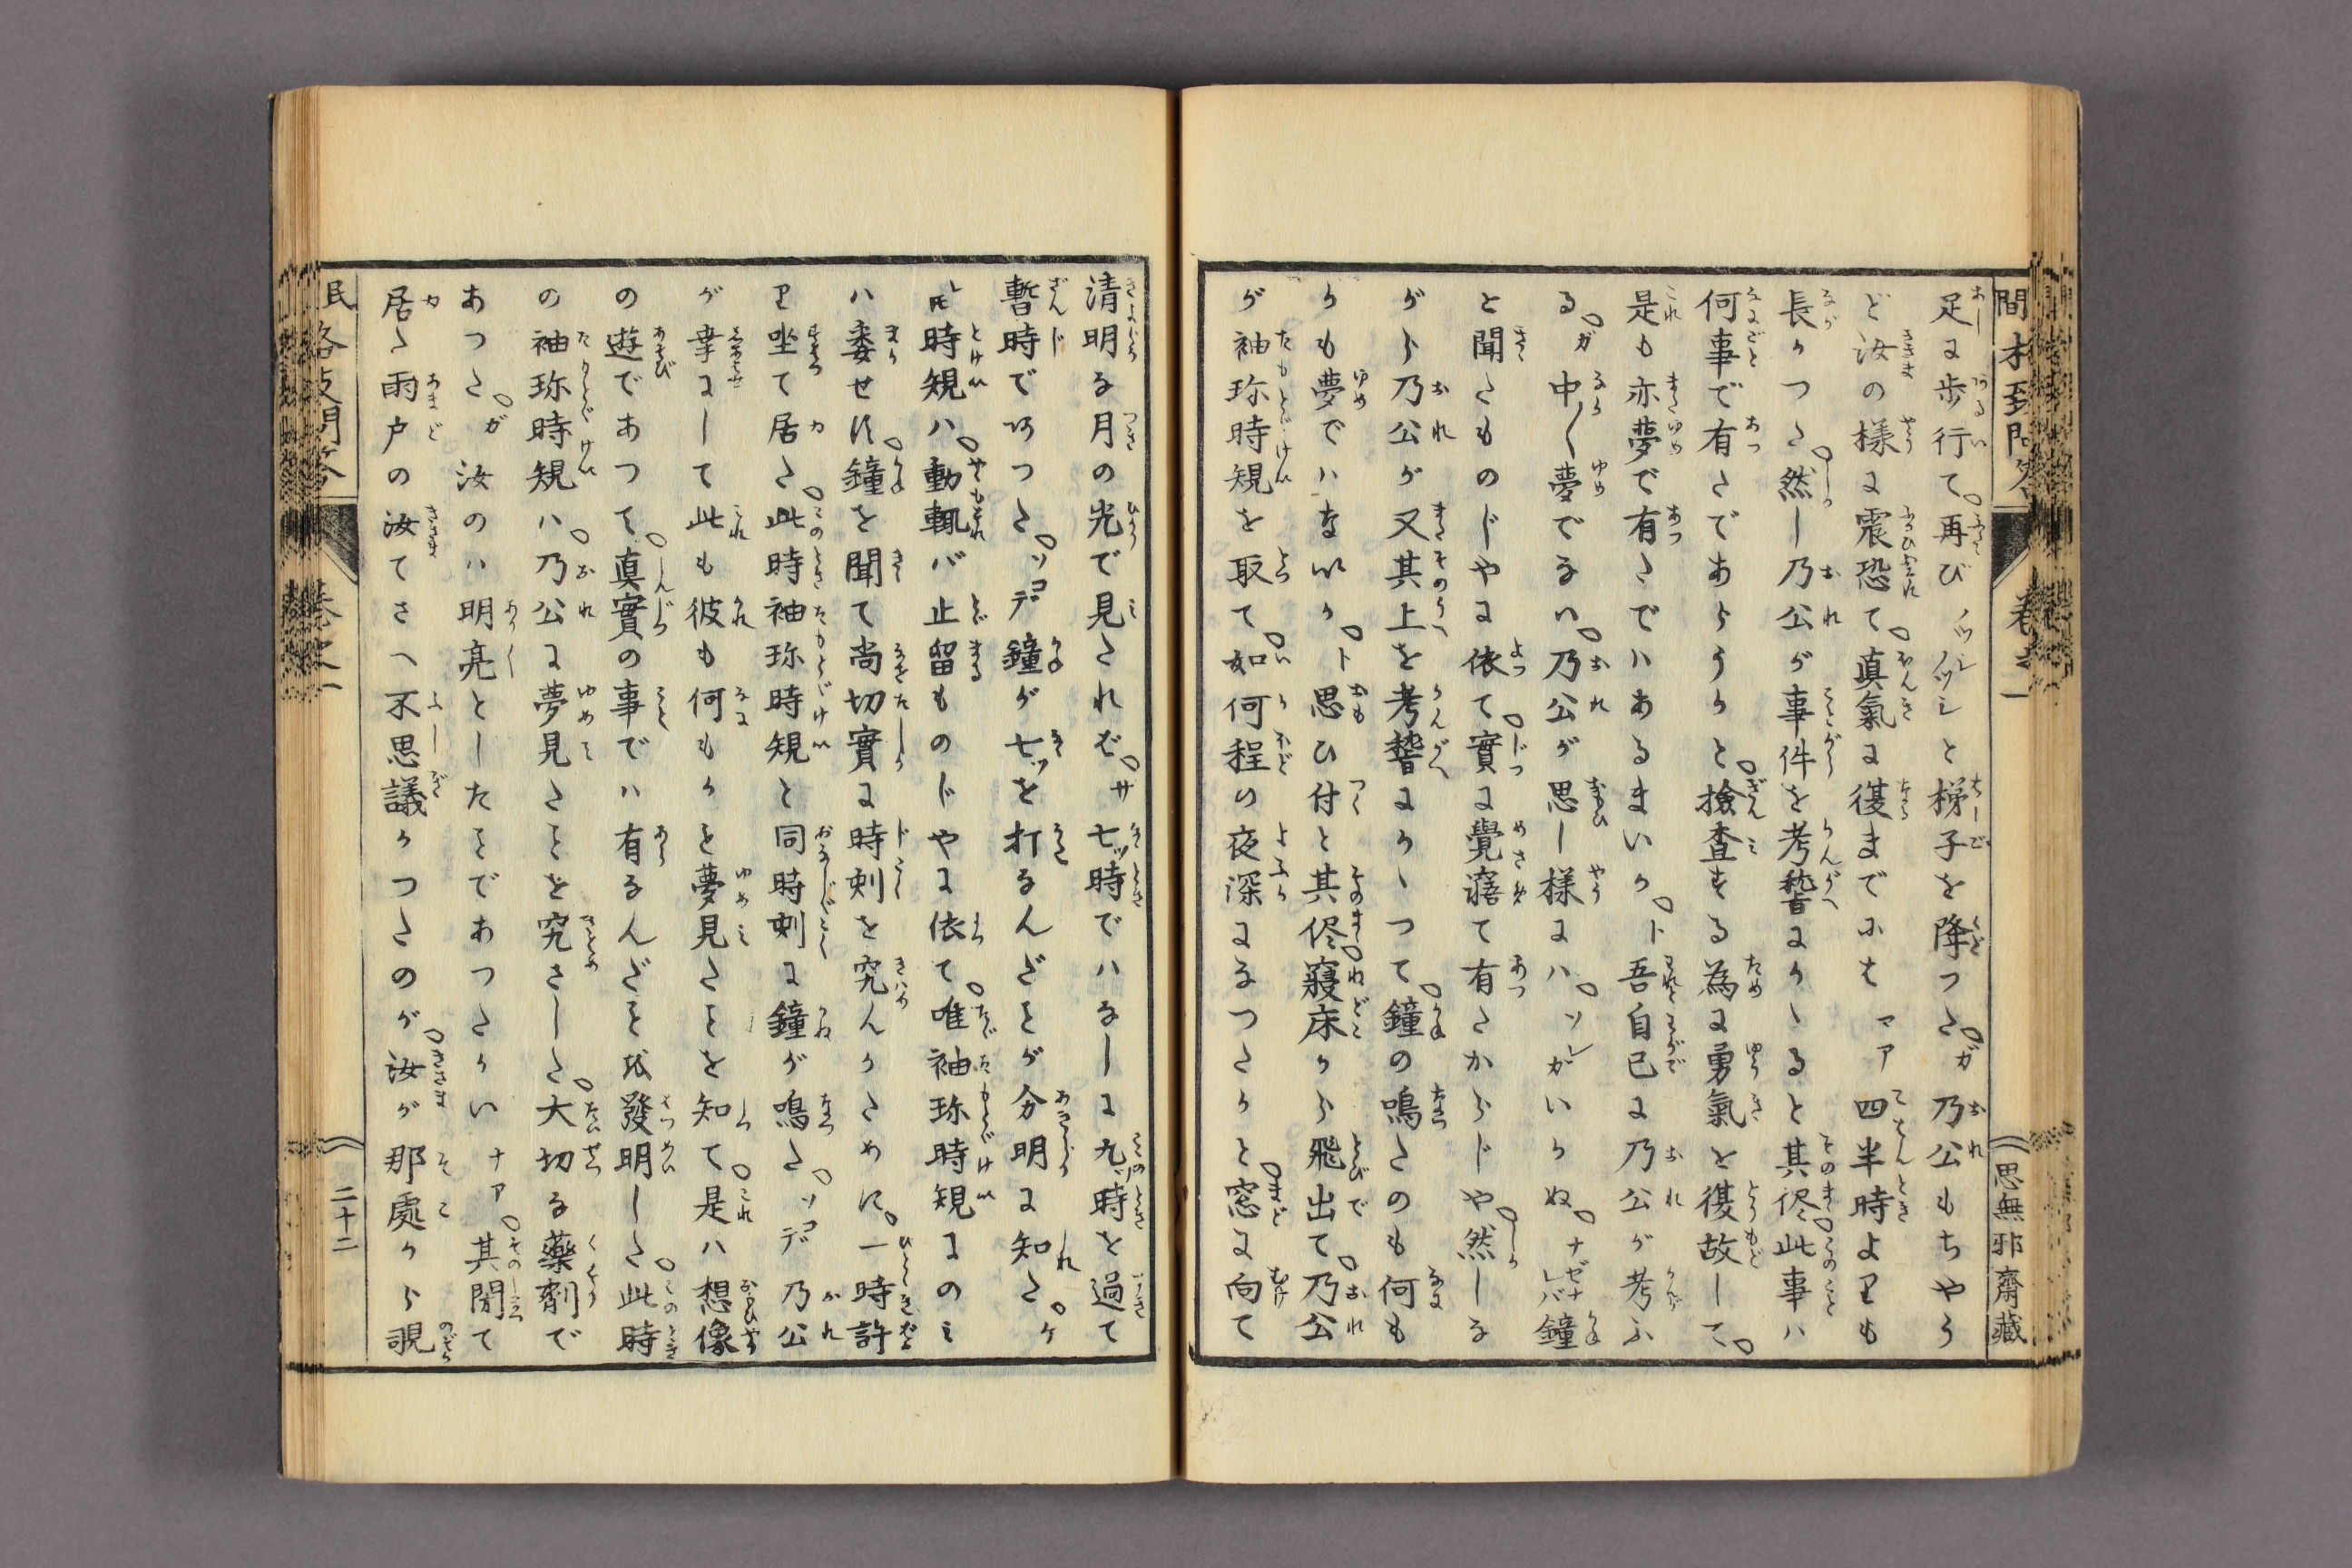 足に歩行て。再びノツシノツシと梯子を降つた。ガ乃公もちやう
ど汝の様に震恐て。真氣に復まで小も マア四半時よりも
長かつた。然し乃公が事件を考證にかゝると其侭。此事ハ
何事で有たであらうかと。撿査する為に勇氣を復故して。
是も亦夢で有たでハあるまいか。ト吾自已に乃公が考ふ
る。ガ中〳〵夢でない。乃公が思し様にハ。ソレがいかぬ。ナゼナレバ鐘
と聞たものじやに依て。實に覺寤て有たからじや。然しな
がら乃公が又其上を考證にかゝつて。鐘の鳴たのも何も
かも夢でハないか。ト思ひ付と其侭。寢床から飛出て。乃公
が袖珎時規を取て。如何程の夜深になつたかと。窓に向て
清明な月の光で見たれば。サ七ッ時でハなしに九ッ時を過て
暫時で有つた。ソコデ鐘が七ッを打なんだことが分明に知た。ケ
レ𪜈時規ハ。動輒バ止留ものじやに依て。唯袖珎時規にのミ
ハ委せず。鐘を聞て尚切實に時刺を究んかために。一時許
り坐て居た。此時袖珎時規と同時刺に鐘が鳴た。ソコデ乃公
が幸にして此も彼も何もかも夢見たことを知て。是ハ想像
の遊であつて。真實の事でハ有なんだことを發明した。此時
の袖珎時規ハ。乃公に夢見たことを究さした。大切な藥劑で
あつた。ガ汝のハ明亮としたことであつたかい ナア。其閉て
居た雨戸の汝てさへ不思議かつたのが。汝が那處から覗
民
卷之一
二十二
卷之一
思無邪齋藏